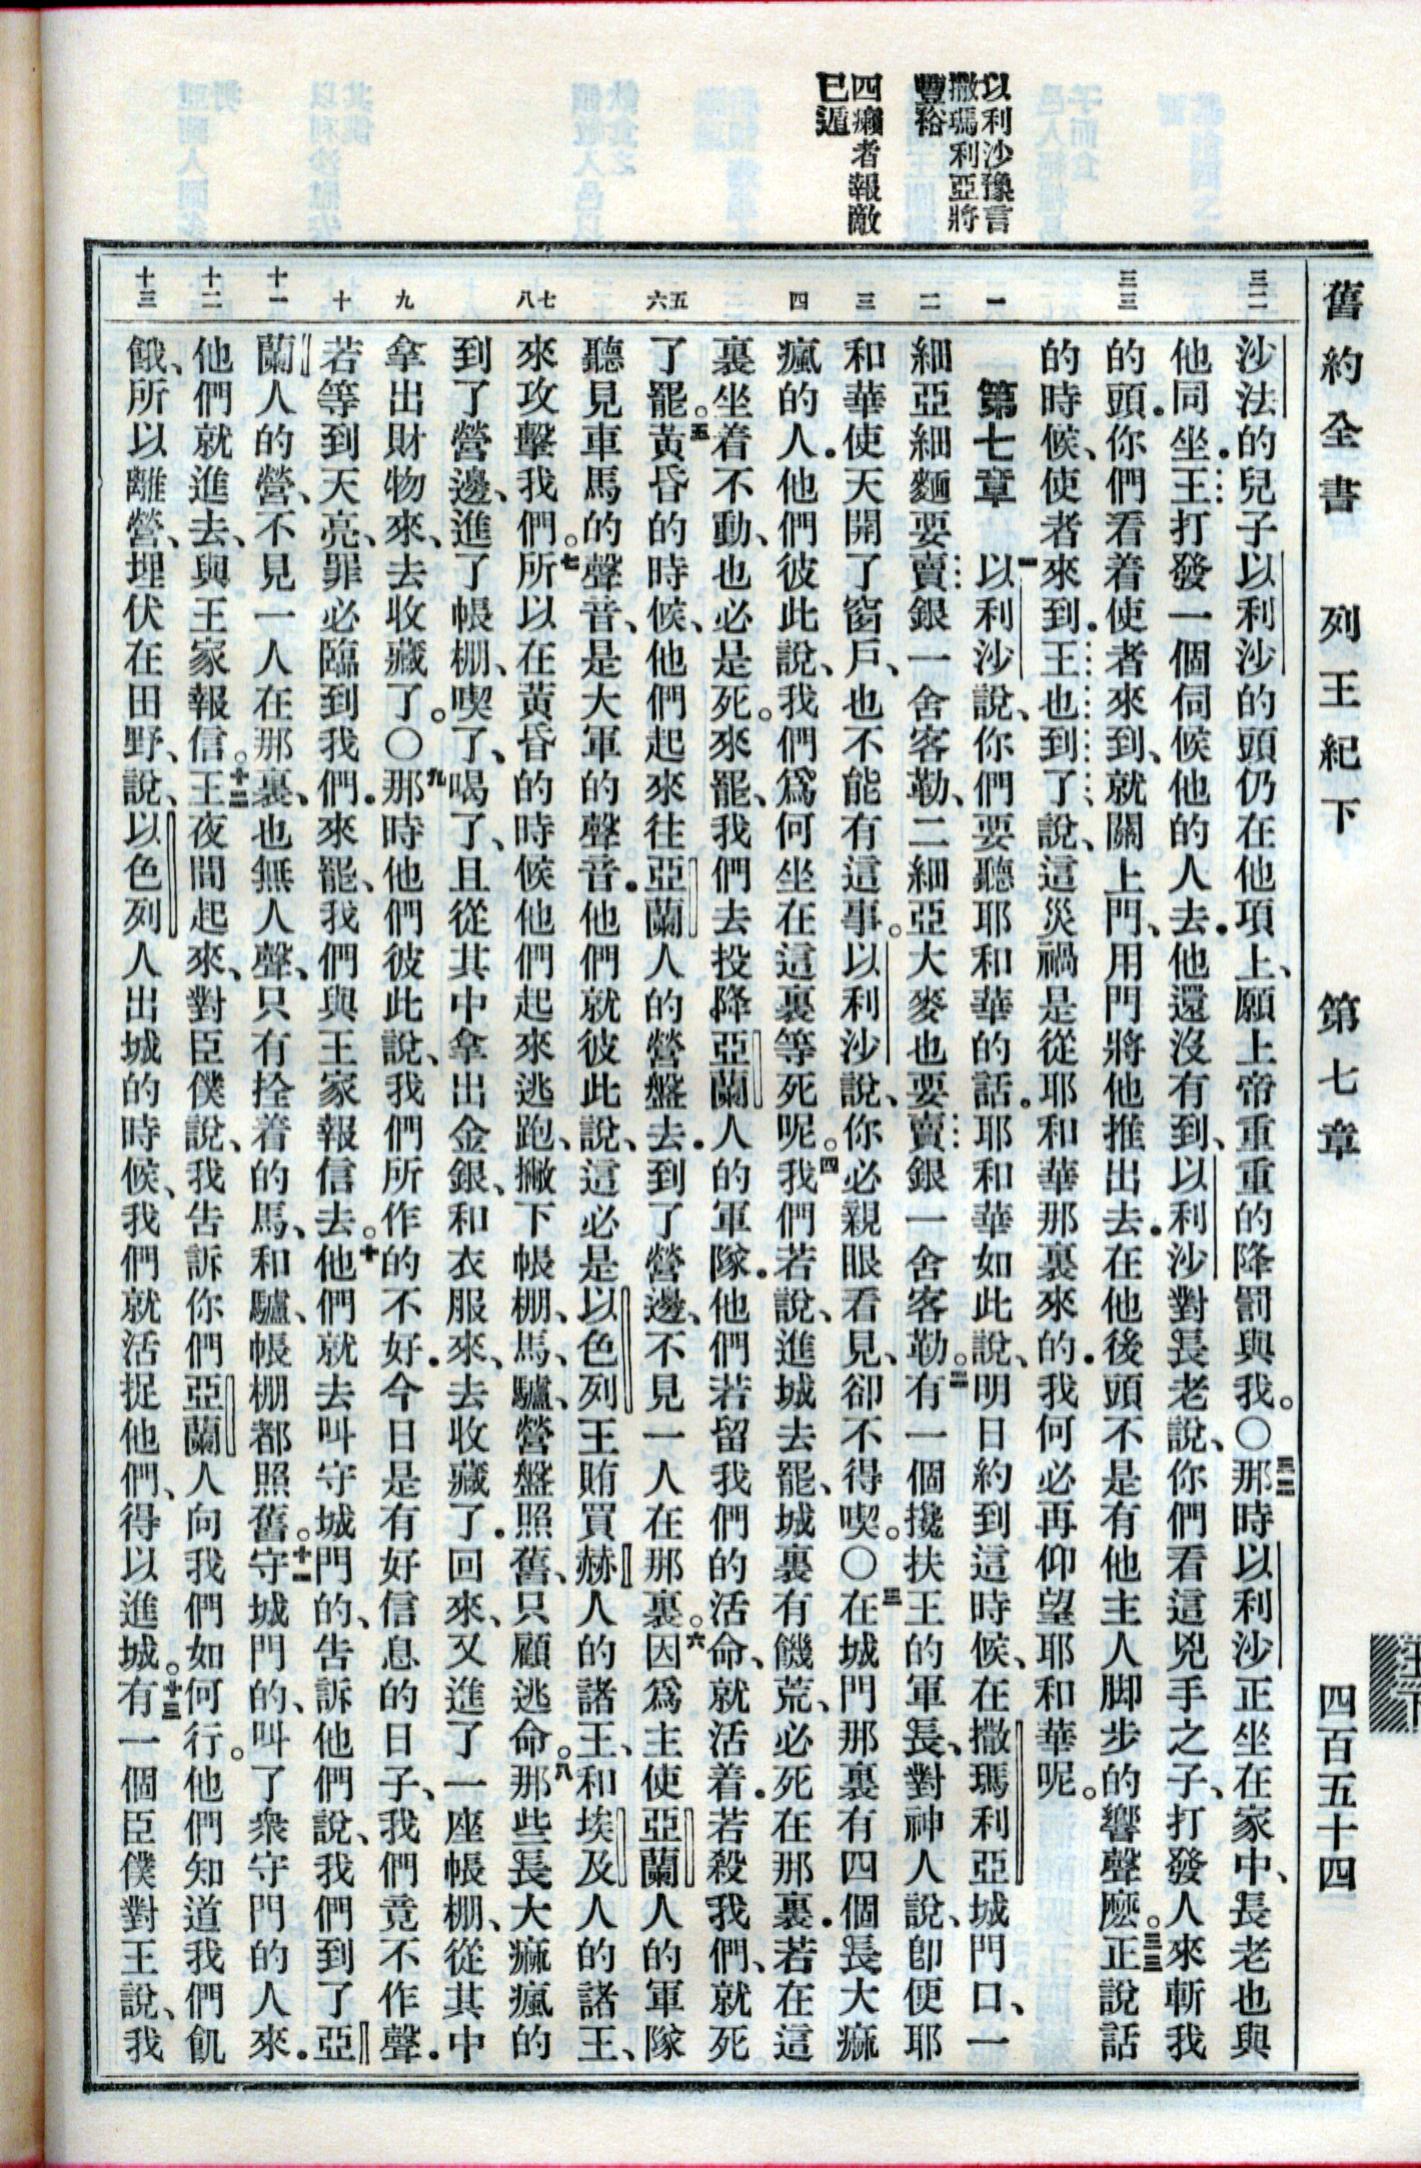 舊約全書　列王紀下　第七章　四百五十四
王下
以利沙豫言
撒瑪利亞將
豐裕
四癩者報敵
已遁
三二
三三
一
二
三
四
五
六
七
八
九
十
十一
十二
十三
沙法的兒子以利沙的頭仍在他項上、願上帝重重的降罰與我。○三二那時以利沙正坐在家中、長老也與
他同坐．王打發一個伺候他的人去．他還沒有到、以利沙對長老說、你們看這兇手之子、打發人來斬我
的頭．你們看着使者來到、就關上門、用門將他推出去．在他後頭不是有他主人脚步的響聲麽。三三正說話
的時候、使者來到．王也到了、說、這災禍是從耶和華那裏來的．我何必再仰望耶和華呢。
第七章　一以利沙說、你們要聽耶和華的話．耶和華如此說、明日約到這時候、在撒瑪利亞城門口、一
細亞細麵要賣銀一舍客勒、二細亞大麥也要賣銀一舍客勒。二有一個攙扶王的軍長、對神人說、卽便耶
和華使天開了窗戶、也不能有這事。以利沙說、你必親眼看見、卻不得喫。○三在城門那裏有四個長大痲
瘋的人．他們彼此說、我們爲何坐在這裏等死呢。四我們若說、進城去罷、城裏有饑荒、必死在那裏．若在這
裏坐着不動、也必是死。來罷、我們去投降亞蘭人的軍隊．他們若留我們的活命、就活着．若殺我們、就死
了罷。五黃昏的時候、他們起來往亞蘭人的營盤去．到了營邊、不見一人在那裏。六因爲主使亞蘭人的軍隊
聽見車馬的聲音、是大軍的聲音．他們就彼此說、這必是以色列王賄買赫人的諸王、和埃及人的諸王、
來攻擊我們。七所以在黃昏的時候他們起來逃跑、撇下帳棚、馬、驢、營盤照舊、只顧逃命。八那些長大痲瘋的
到了營邊、進了帳棚、喫了、喝了、且從其中拿出金銀、和衣服來、去收藏了．回來、又進了一座帳棚、從其中
拿出財物來、去收藏了。○九那時他們彼此說、我們所作的不好．今日是有好信息的日子、我們竟不作聲．
若等到天亮、罪必臨到我們．來罷、我們與王家報信去。十他們就去叫守城門的、告訴他們說、我們到了亞
蘭人的營、不見一人在那裏、也無人聲、只有拴着的馬、和驢、帳棚都照舊。十一守城門的、叫了衆守門的人來．
他們就進去、與王家報信。十二王夜間起來、對臣僕說、我告訴你們亞蘭人向我們如何行。他們知道我們飢
餓、所以離營、埋伏在田野、說、以色列人出城的時候、我們就活捉他們、得以進城。十三有一個臣僕對王說、我